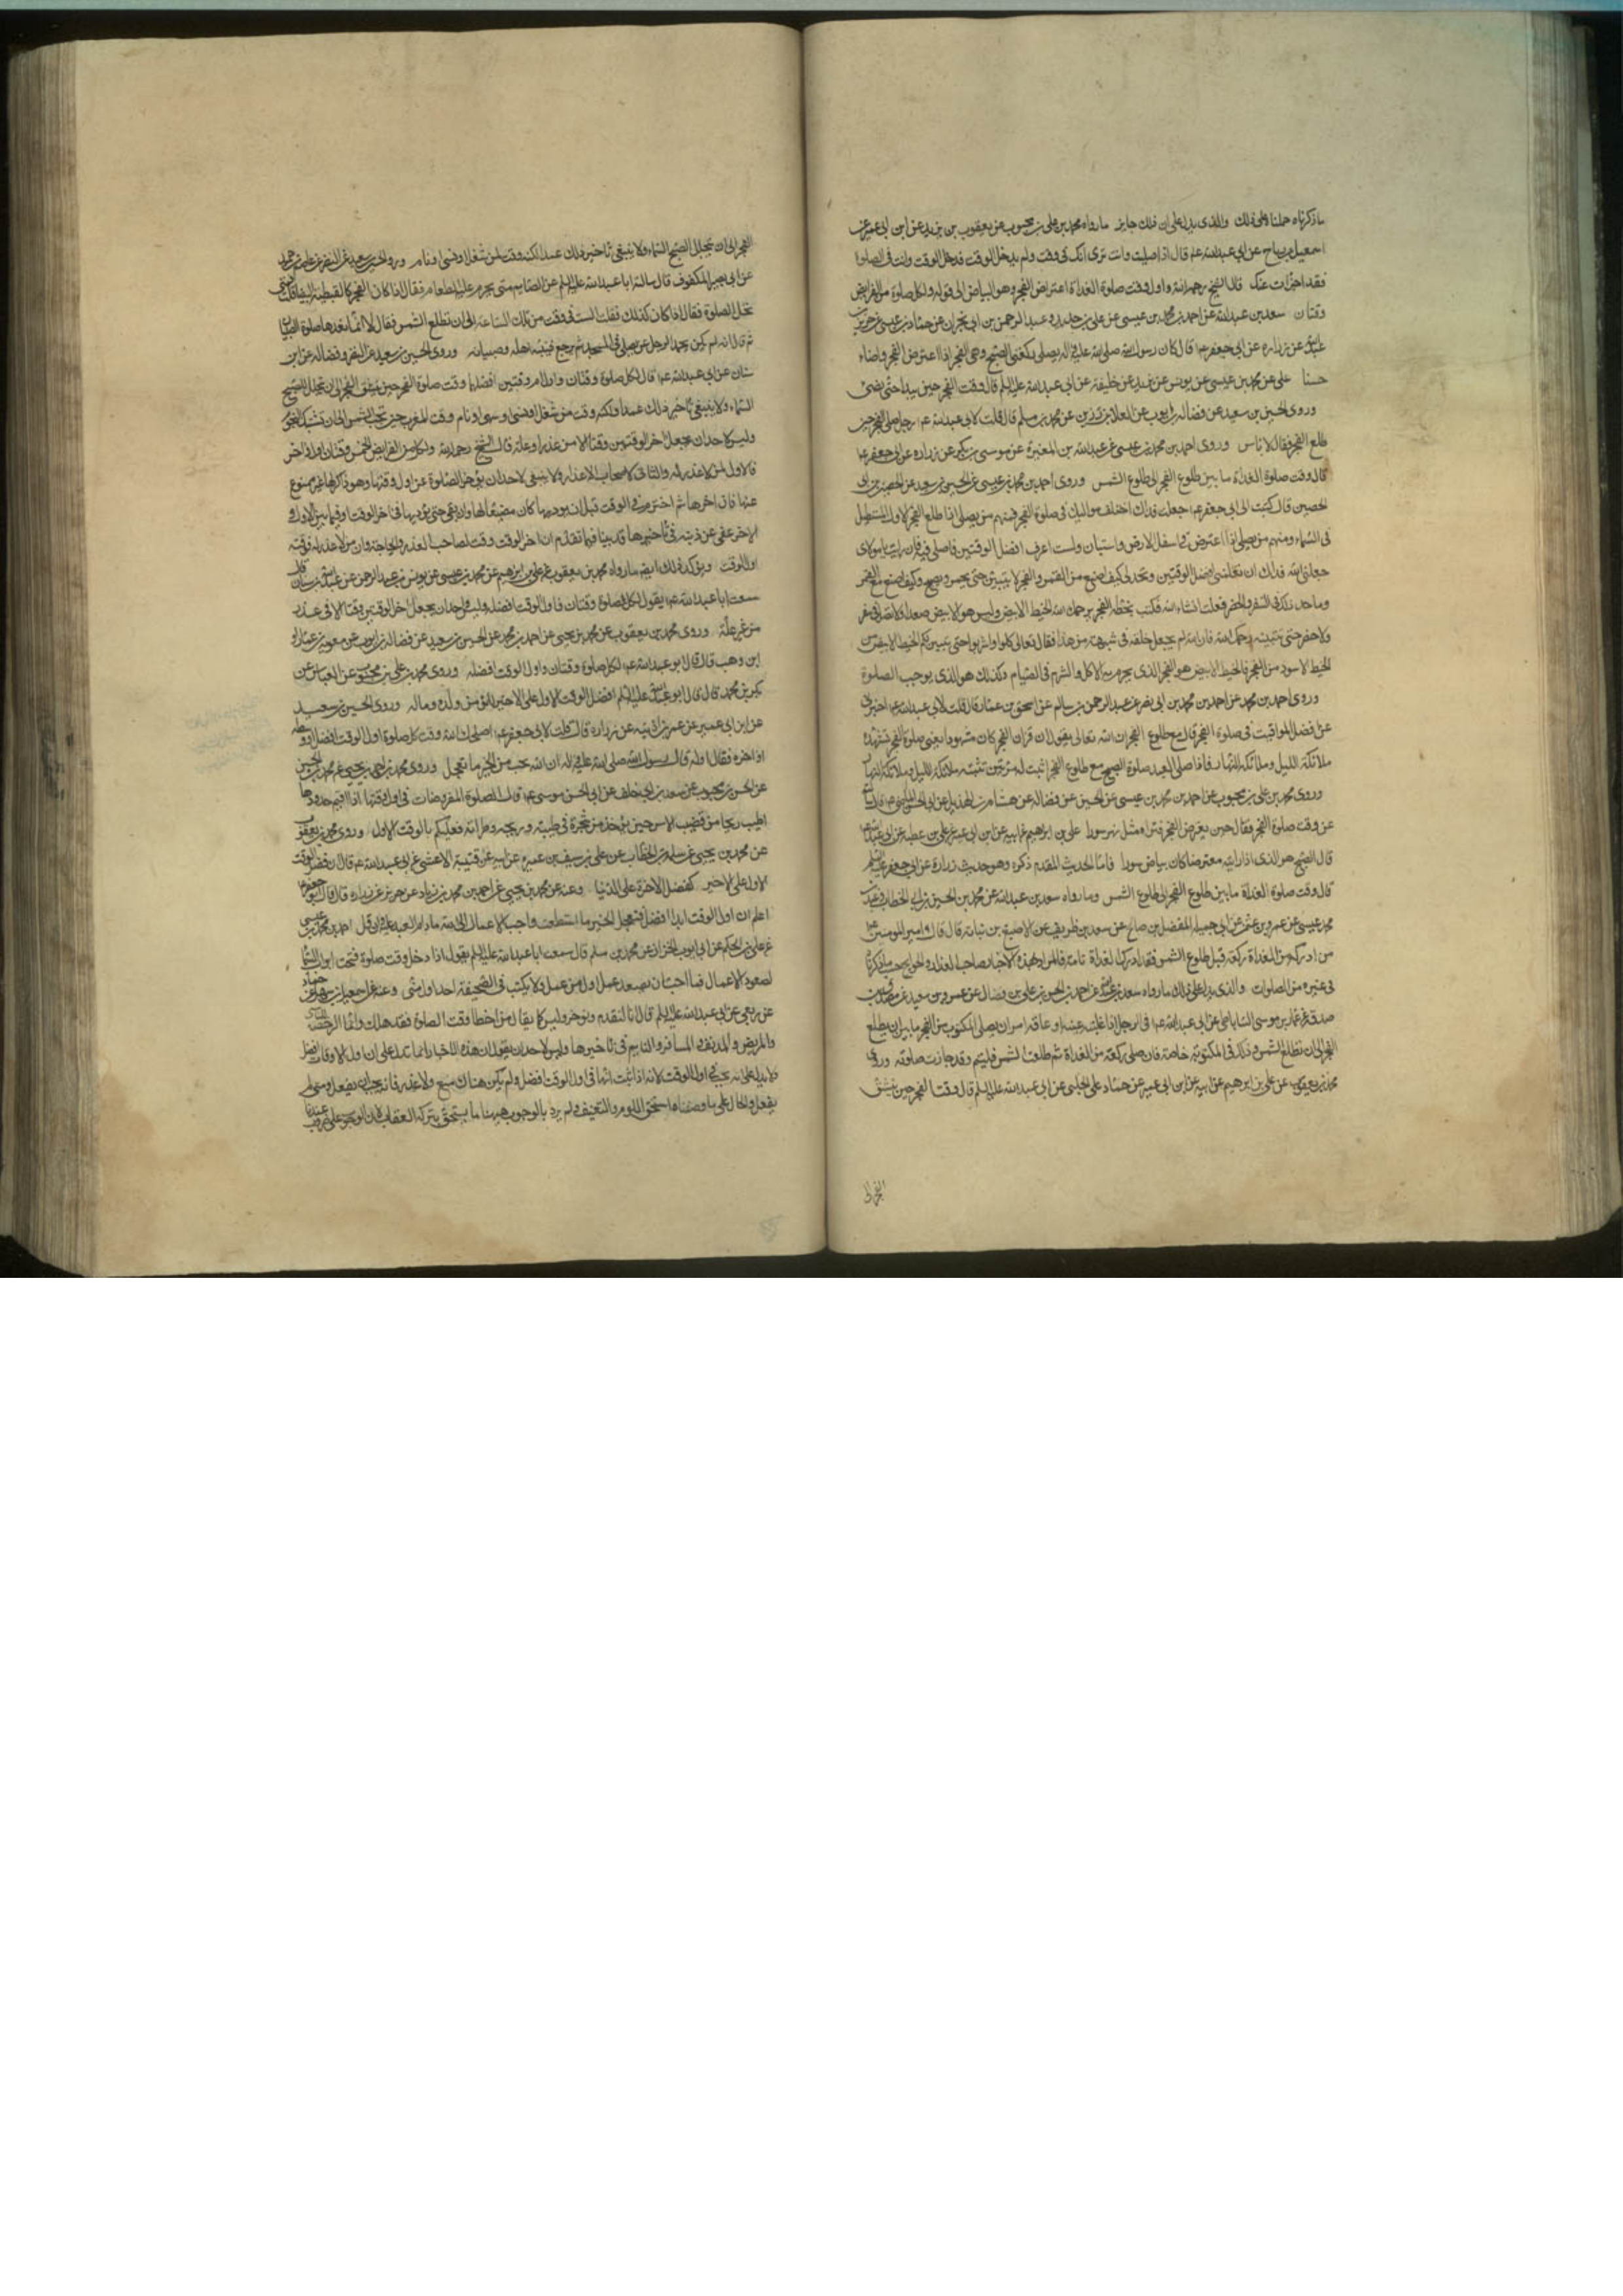 ما ذكرناه حملنا على ذلك والذي يدل على ان ذلك جايز ما رواه محمد بن علي بن محبوب عن يعقوب بن يزيد عن ابن ابي عمير عن
اسمعيل بن رباح عن ابي عبدالله عم قال اذا صليت وانت ترى انك في وقت ولم يدخل الوقت فدخل الوقت وانت في الصلوة
فقد اجزات عنك قال الشيخ رحمه الله واول وقت صلوة الغداة اعتراض الفجر وهو البياض الى قوله ولكل صلوة من الفرايض
وقتان سعد بن عبدالله عن احمد بن محمد بن عيسى عن علي بن حديد وعبد الرحمن بن ابي نجران عن حماد بن عيسى عن حريز بن
عبدالله عن زرارة عن ابي جعفر عم قال كان رسول الله صلى الله عليه واله يصلي ركعتي الصبح وهي الفجر اذا اعترض الفجر واضاء
حسنا علي عن محمد بن عيسى عن يونس عن يزيد بن خليفة عن ابي عبدالله عليه السلم قال وقت الفجر حين يبدا حتى يضئ
وروى الحسين بن سعيد عن فضالة بن ايوب عن العلا بن رزين عن محمد بن مسلم قال قلت لابي عبدالله عم رجل صلى الفجر حين
طلع الفجر فقال لا باس وروى احمد بن محمد بن عيسى عن عبدالله بن المغيرة عن موسى بن بكر عن زرارة عن ابي جعفر عم
قال وقت صلوة الغداة ما بين طلوع الفجر الى طلوع الشمس وروى احمد بن محمد بن عيسى عن الحسين بن سعيد عن الحصين بن ابي
الحصين قال كتبت الى ابي جعفر عم جعلت فداك اختلف مواليك في صلوة الفجر فمنهم من يصلي اذا طلع الفجر الاول المستطيل
في السماء ومنهم من يصلي اذا اعترض في اسفل الارض واستبان ولست اعرف افضل الوقتين فاصلي فيه فان رايت يا مولاي
جعلني الله فداك ان تعلمني افضل الوقتين وتحد لي كيف اصنع مع القمر والفجر لا يتبين حتى يحمر ويصبح وكيف اصنع مع القمر
وما حد ذلك في السفر والحضر فعلت انشاء الله فكتب بخطه الفجر يرحمك الله الخيط الابيض وليس هو الابيض صعدا فلا تصل في سفر
ولا حضر حتى تتبينه رحمك الله فان الله لم يجعل خلقه في شبهة من هذا فقال تعالى كلوا واشربوا حتى يتبين لكم الخيط الابيض من
الخيط الاسود من الفجر فالخيط الابيض هو الفجر الذي يحرم به الاكل والشرب في الصيام وكذلك هو الذي يوجب الصلوة
وروى احمد بن محمد عن احمد بن محمد بن ابي نصر عن عبد الرحمن بن سالم عن اسحق بن عمار قال قلت لابي عبدالله عم اخبرني
عن افضل المواقيت في صلوة الفجر قال مع طلوع الفجر ان الله تعالى يقول ان قران الفجر كان مشهودا يعني صلوة الفجر تشهده
ملائكة الليل وملائكة النهار فاذا صلى العبد صلوة الصبح مع طلوع الفجر اثبت له مرتين تثبته ملائكة الليل وملائكة النهار
وروى محمد بن علي بن محبوب عن احمد بن محمد بن عيسى عن الحسين عن فضالة عن هشام بن الهذيل عن ابي الحسن الماضي عم قال سالته
عن وقت صلوة الفجر فقال حين يعترض الفجر فتراه مثل نهر سورا علي بن ابراهيم عن ابيه عن ابن ابي عمير عن علي بن عطية عن ابي عبدالله عم
قال الصبح هو الذي اذا رايته معترضا كان بياض سورا فاما الحديث المقدم ذكره وهو حديث زرارة عن ابي جعفر عليه السلم
قال وقت صلوة الغداة ما بين طلوع الفجر الى طلوع الشمس وما رواه سعد بن عبدالله عن محمد بن الحسين بن ابي الخطاب وعبدالله بن
محمد بن عيسى عن عمرو بن عثمن عن ابي جميلة المفضل بن صالح عن سعد بن طريف عن الاصبغ بن نباتة قال قال امير المومنين عم
من ادرك من الغداة ركعة قبل طلوع الشمس فقد ادرك الغداة تامة فالمراد بهذه الاخبار صاحب العذر والحوايج حسب ما ذكرناه
في غيره من الصلوات والذي يدل على ذلك ما رواه سعد بن عبدالله عن احمد بن الحسن بن علي بن فضال عن عمرو بن سعيد عن مصدق بن
صدقة عن عمار بن موسى الساباطي عن ابي عبدالله عم في الرجل اذا غلبته عينه او عاقه امر ان يصلي المكتوبة من الفجر ما بين ان يطلع
الفجر الى ان تطلع الشمس وذلك في المكتوبة خاصة فان صلى ركعة من الغداة ثم طلعت الشمس فليتم وقد جازت صلوته وروى
محمد بن يعقوب عن علي بن ابرهيم عن ابيه عن ابن ابي عمير عن حماد عن الحلبي عن ابي عبدالله عليه السلم قال وقت الفجر حين ينشق
الفجر الى
الفجر الى ان يتجلل الصبح السماء ولا ينبغي تاخير ذلك عمدا لكنه وقت لمن شغل او نسي او نام وروى الحسين بن سعيد عن النضر عن عاصم بن حميد
عن ابي بصير المكفوف قال سالت ابا عبدالله عليه السلم عن الصايم متى يحرم عليه الطعام فقال اذا كان الفجر كالقبطية البيضا قلت فمتى
تحل الصلوة فقال اذا كان كذلك فقلت الست في وقت من تلك الساعة الى ان تطلع الشمس فقال لا انما نعدها صلوة الصبيان
ثم قال انه لم يكن يحمد الرجل ان يصلي في المسجد ثم يرجع فينبه اهله وصبيانه وروى الحسين بن سعيد عن النضر وفضالة عن ابن
سنان عن ابي عبدالله عم قال لكل صلوة وقتان واول الوقتين افضلهما وقت صلوة الفجر حين ينشق الفجر الى ان يتجلل الصبح
السماء ولا ينبغي تاخير ذلك عمدا ولكنه وقت من شغل او نسي او سهى او نام ووقت المغرب حين تجب الشمس الى ان تشتبك النجوم
وليس لاحد ان يجعل اخر الوقتين وقتا الا من عذر او علة قال الشيخ رحمه الله ولكل من الفرايض الخمس وقتان اول واخر
فالاول لمن لا عذر له والثاني لاصحاب الاعذار ولا ينبغي لاحد ان يؤخر الصلوة عن اول وقتها وهو ذاكر لها غير ممنوع
عنها فان اخرها ثم اخترم في الوقت قبل ان يوديها كان مضيعا لها وان بقي حتى يؤديها في اخر الوقت او فيما بين الاول و
الاخر عفي عن ذنبه في تاخيرها قد بينا فيما تقدم ان اخر الوقت وقت لصاحب العذر والحاجة وان من لا عذر له فوقته
اول الوقت ويؤكد ذلك ايضا ما رواه محمد بن يعقوب عن علي بن ابرهيم عن محمد بن عيسى عن يونس بن عبد الرحمن عن عبدالله بن سنان قال
سمعت ابا عبدالله عم يقول لكل صلوة وقتان فاول الوقت افضله وليس لاحد ان يجعل اخر الوقتين وقتا الا في عذر
من غير علة وروى محمد بن يعقوب عن محمد بن يحيى عن احمد بن محمد عن الحسين بن سعيد عن فضالة بن ايوب عن معوية بن عمار او
ابن وهب قال قال ابو عبدالله عم لكل صلوة وقتان واول الوقت افضله وروى محمد بن علي بن محبوب عن العباس عن
بكر بن محمد قال قال ابو عبدالله عليه السلم افضل الوقت الاول على الاخر للمؤمن من ولده وماله وروى الحسين بن سعيد
عن ابن ابي عمير عن عمر بن اذينه عن زرارة قال قلت لابي جعفر عم اصلحك الله وقت كل صلوة اول الوقت افضل او وسطه
او اخره فقال اوله قال رسول الله صلى الله عليه واله ان الله يحب من الخير ما يعجل وروى محمد بن احمد بن يحيى عن محمد بن الحسين
عن الحسن بن محبوب عن سعد بن ابي خلف عن ابي الحسن موسى عم قال الصلوة المفروضات في اول وقتها اذا اقيم حدودها
اطيب ريحا من قضيب الاس حين يؤخذ من شجرة في طيبه وريحه وطراته فعليكم بالوقت الاول وروى محمد بن يعقوب
عن محمد بن يحيى عن سلمة بن الخطاب عن علي بن سيف بن عميرة عن ابيه عن قتيبة الاعشى عن ابي عبدالله عم قال ان فضل الوقت
الاول على الاخير كفضل الاخرة على الدنيا وعنه عن محمد بن يحيى عن احمد بن محمد بن زياد عن حريز عن زرارة قال قال ابو جعفر عم
اعلم ان اول الوقت ابدا افضل فتعجل الخير ما استطعت واحب الاعمال الى الله ما دام العبد عليه وان قل احمد بن محمد بن عيسى
عن علي بن الحكم عن ابي ايوب الخزاز عن محمد بن مسلم قال سمعت ابا عبدالله عليه السلم يقول اذا دخل وقت صلوة فتحت ابواب السماء
لصعود الاعمال فما احب ان يصعد عمل اول من عملي ولا يكتب في الصحيفة احد اول مني وعنه عن اسمعيل بن سهل عن حماد
عن ربعي عن ابي عبدالله عليه السلم قال انا لنقدم ونوخر وليس كما يقال من اخطا وقت الصلوة فقد هلك وانما الرخصة للناسي
والمريض والمدنف والمسافر والنايم في تاخيرها وليس لاحد ان يقول ان هذه الاخبار انما تدل على ان اول الاوقات افضل
ولا يدل على انه يجب في اول الوقت لانه اذا ثبت انها في اول الوقت افضل ولم يكن هناك منع ولا عذر فانه يجب ان يفعل ومتى لم
يفعل والحال على ما وصفناه استحق اللوم والتعنيف ولم يرد بالوجوب ههنا ما يستحق بتركه العقاب لان الوجوب على ضروب عندنا